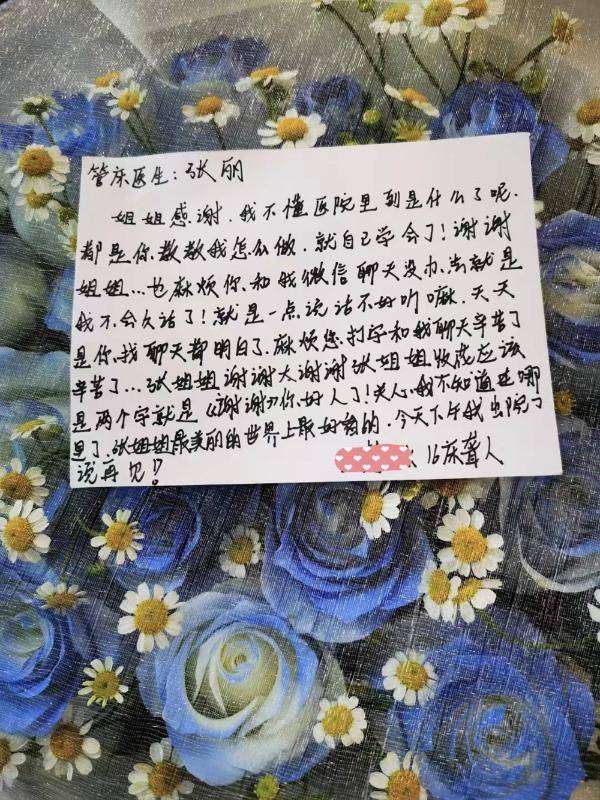 管床医生:张丽
姐姐感谢.我不懂医院里到是什么了呢.
都是你.教教我怎么做.就自己学会了!谢谢
姐姐...也麻烦你.和我微信聊天没办.法就是
我不.会久话了!就是一点.说话不好听嘛.天天
是你.找聊天都明白了.麻烦您.打字和我聊天辛苦了
辛苦了...张姐姐谢谢大谢谢张姐姐收应该
是两个字就是《谢谢》你.好人了!关心.我不知道
是了.张姐姐最美丽的世界上最好给的.今天下午我出院了
说再见!
16床聋人